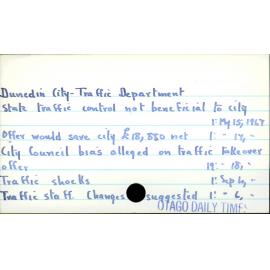 Dunedin City-Traffic Department
State traffic control not beneficial to city
1: My 15, 1967
Offer would save city £18,880 net 1: " 17, -
City Council bias alleged on traffic takeover
offer 19: " 18, -
Traffic shocks 1: Sep 6, -
Traffic staff Changes suggested 1: " 6, -
OTAGO DAILY TIMES